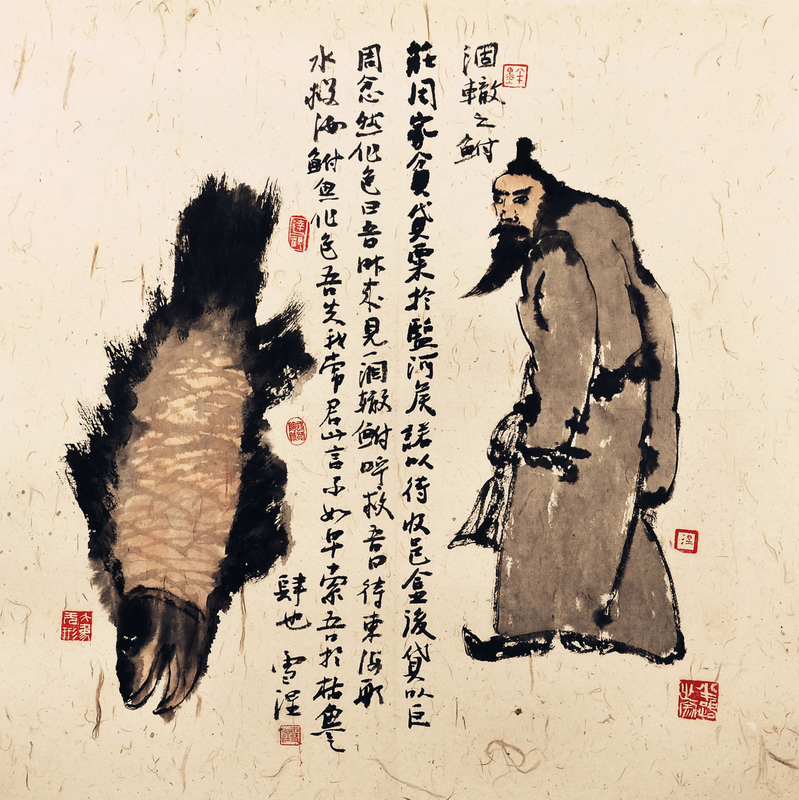 涸轍之鮒
莊周家貧貸粟於監河侯諾以待收邑金後貸以巨
周忿然作色曰吾昨來見一涸轍鮒呼救吾曰待東海
水救鮒魚作色吾失我常君此言不如早索吾於枯魚之
肆也
雪涅
大象无形